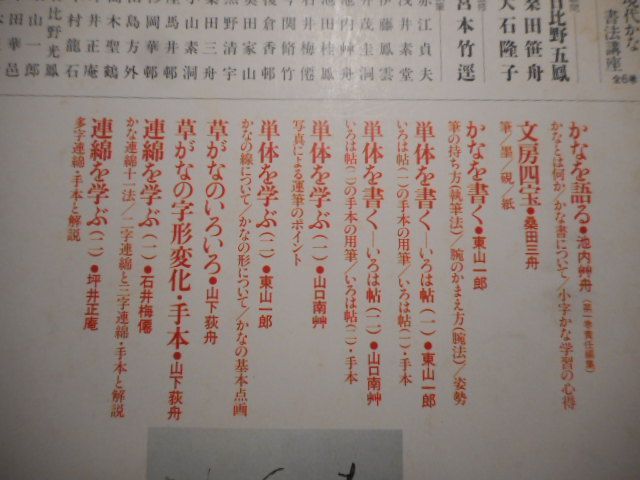 現代かな
書法講座 全6巻
日比野五鳳
桑田笹舟
大石隆子
宮本竹逕
赤江貞夫
浅井素堂
伊藤鳳雲
井茂圭洞
池内艸舟
池田桂鳳
石井梅僊
今関脩竹
榎倉香邨
奥田家山
熊野清宇
桑田三舟
座馬井邨
杉岡華邨
高木聖鶴
坪井正庵
中村龍石
東山一郎
日比野光鳳
かなを語る●池内艸舟(第一巻責任編集)
かなとは何か/かな書について/小字かな学習の心得
文房四宝●桑田三舟
筆/墨/硯/紙
かなを書く●東山一郎
筆の持ち方(執筆法)/腕のかまえ方(腕法)/姿勢
単体を書く―いろは帖(一)●東山一郎
いろは帖(一)の手本の用筆/いろは帖(一)・手本
単体を書く―いろは帖(二)●山口南艸
いろは帖(二)の手本の用筆/いろは帖(二)・手本
単体を学ぶ(一)●山口南艸
写真による運筆のポイント
単体を学ぶ(二)●東山一郎
かなの線について/かなの形について/かなの基本点画
草がなのいろいろ●山下荻舟
草がなの字形変化・手本●山下荻舟
連綿を学ぶ(一)●石井梅僊
かな連綿十一法/二字連綿と三字連綿・手本と解説
連綿を学ぶ(二)●坪井正庵
多字連綿・手本と解説